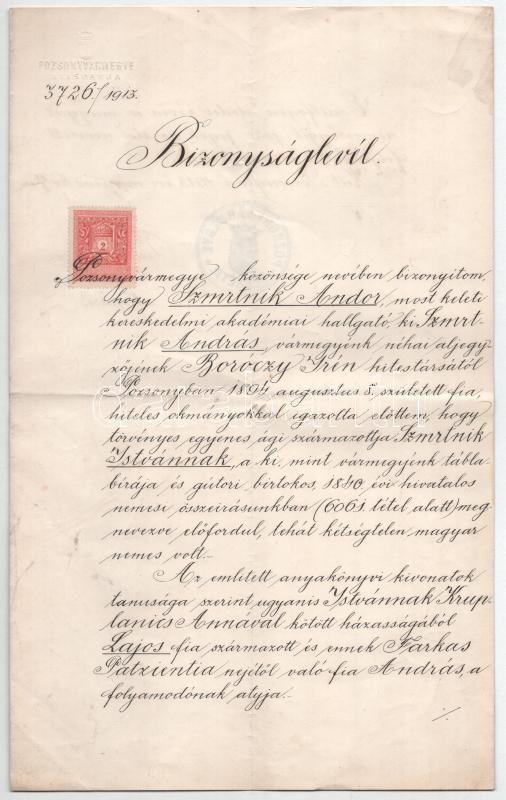 POZSONYVÁRMEGYE
ALISPÁNJA
3726/1913.
Bizonyságlevél.
2
Pozsonyvármegye közönsége nevében bizonyitom,
hogy Szmrtnik Andor, most keleti
kereskedelmi akadémiai hallgató, ki Szmrt-
nik András, vármegyénk néhai aljegy-
zőjének Boróczy Irén hitestársától
Pozsonyban 1894 augusztus 5. született fia,
hiteles okmányokkal igazolta előttem, hogy
törvényes egyenes ági származottja Szmrtnik
Istvánnak, a ki, mint vármegyénk tábla-
birája és gútori birtokos, 1840. évi hivatalos
nemesi összeirásunkban (606 i. tétel alatt) meg-
nevezve előfordul, tehát kétségtelen magyar
nemes volt.-
Az emlitett anyakönyvi kivonatok
tanusága szerint ugyanis Istvánnak Krup-
lanics Annával kötött házasságából
Lajos fia származott és ennek Farkas
Patzientia nejétől való fia András, a
folyamodónak atyja.-
./.